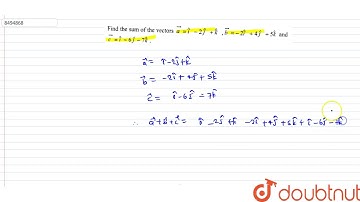 8494868
Find the sum of the vectors a⃗ = î − 2ĵ + k̂ , b⃗ = −2î + 4ĵ + 5k̂ and
c⃗ = î − 6ĵ − 7k̂ .
a⃗ = î − 2ĵ + k̂
b⃗ = −2î + 4ĵ + 5k̂
c⃗ = î − 6ĵ = 7k̂
∴ a⃗ + b⃗ + c⃗ = î − 2ĵ + k̂ − 2î + 4ĵ + 5k̂ + î − 6ĵ − 7k̂
doubtnut